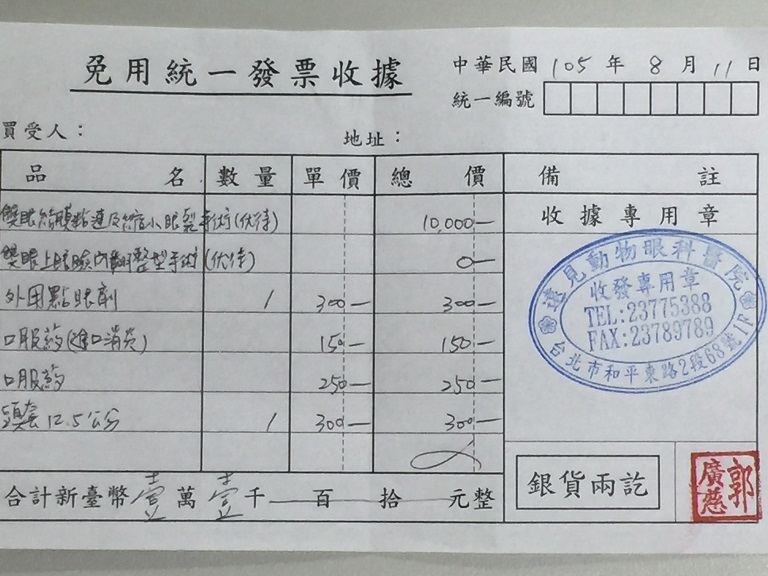 免用統一發票收據
中華民國 105 年 8 月 11 日
統一編號
買受人：
地址：
品名 數量 單價 總價 備註
收據專用章
雙眼結膜 及縮小眼裂手術(優待) 10,000—
雙眼上眼瞼內翻整型手術(優待) 0—
外用點眼劑 1 300— 300—
口服藥(進口消炎) 150— 150—
口服藥 250— 250—
頭套 12.5公分 1 300— 300—
合計新臺幣壹萬壹千 百 拾 元整
遠見動物眼科醫院
收發專用章
TEL:23775388
FAX:23789789
台北市和平東路2段63號1F
銀貨兩訖
郭廣慈